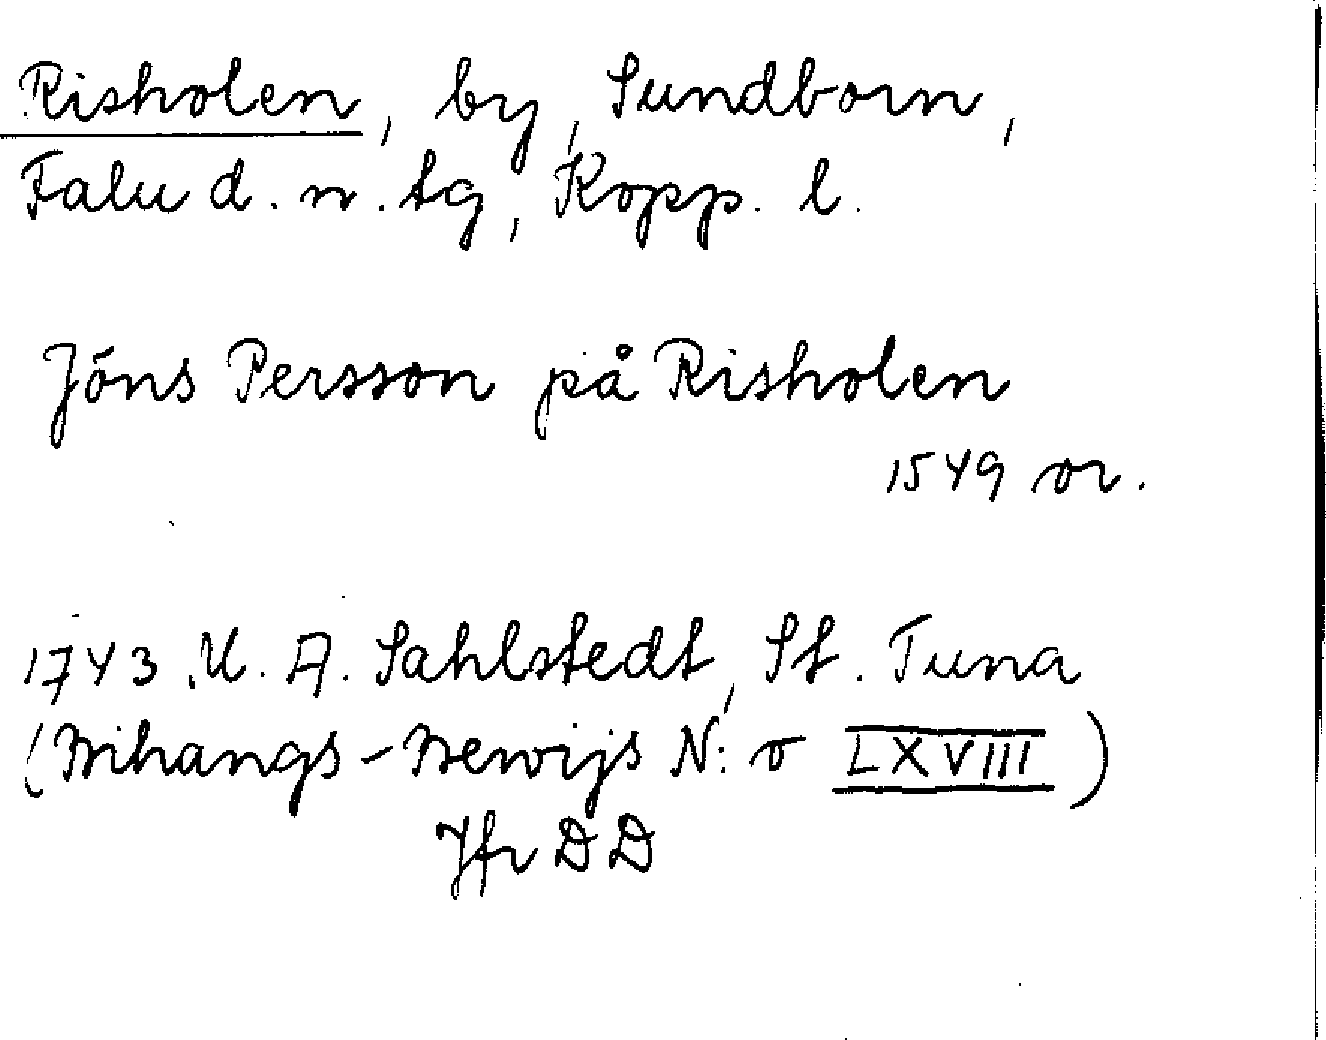 Risholen, by, Sundborn,
Falu d. n. tg, Kopp. l.
Jöns Persson på Risholen
1549 or.
1743. U. A. Sahlstedt, St. Tuna
(Bihangs-Bewijs N:o LXVIII)
Jfr DD